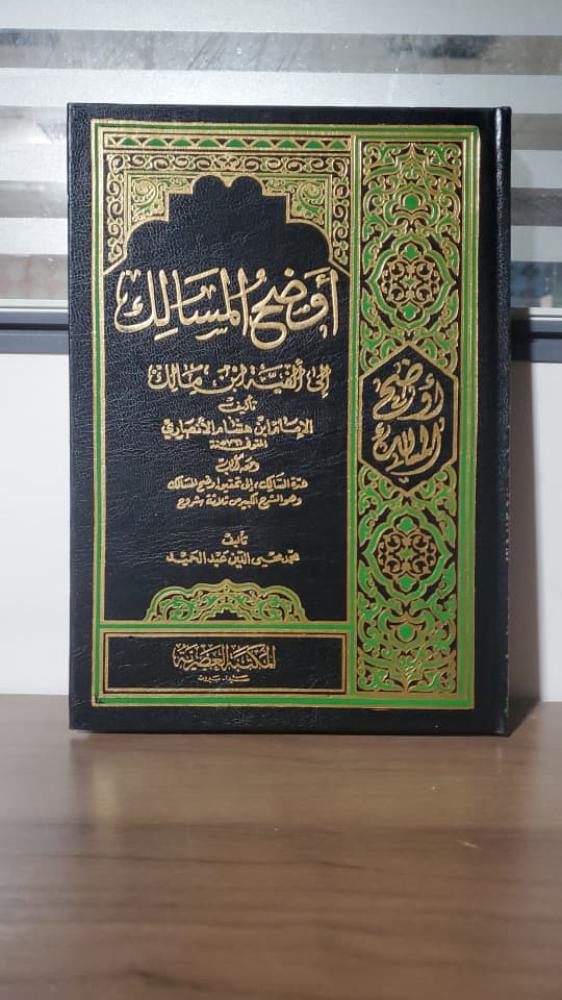 أوضح المسالك
إلى ألفية ابن مالك
تأليف
الإمام ابن هشام الأنصاري
المتوفى ٧٦١ سنة
ومعه كتاب
عدة السالك، إلى تحقيق أوضح المسالك
وهو الشرح الكبير من ثلاثة شروح
تأليف
محمد محيى الدين عبد الحميد
المكتبة العصرية
صيدا - بيروت
أوضح
المسالك